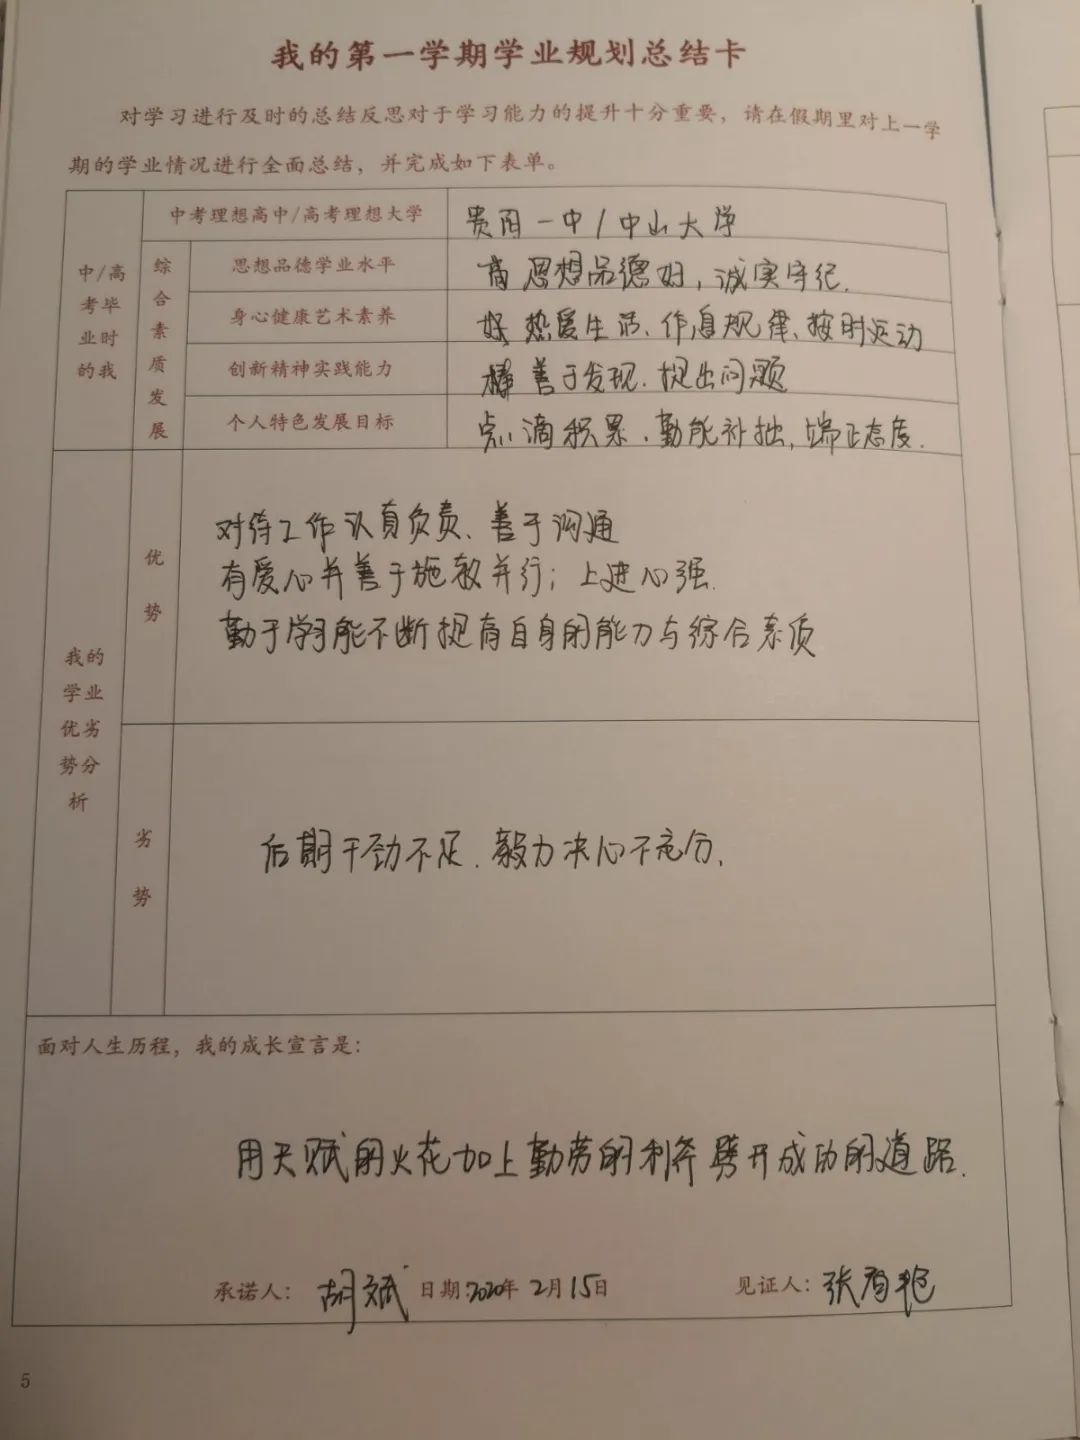 我的第一学期学业规划总结卡
对学习进行及时的总结反思对于学习能力的提升十分重要，请在假期里对上一学
期的学业情况进行全面总结，并完成如下表单。
中/高
考毕
业时
的我
中考理想高中/高考理想大学
贵阳一中/中山大学
综
合
素
质
发
展
思想品德学业水平
高 思想品德好，诚实守纪.
身心健康艺术素养
好 热爱生活、作息规律、按时运动
创新精神实践能力
棒 善于发现、提出问题
个人特色发展目标
点滴积累、勤能补拙，端正态度.
我的
学业
优劣
势分
析
优
势
对待工作认真负责、善于沟通
有爱心并善于施教并行；上进心强.
勤于学习能不断提高自身的能力与综合素质
劣
势
后期干劲不足.毅力决心不充分.
面对人生历程，我的成长宣言是：
用天赋的火花加上勤劳的利斧劈开成功的道路.
承诺人：胡斌 日期：2020年 2月15日 见证人：张有艳
5